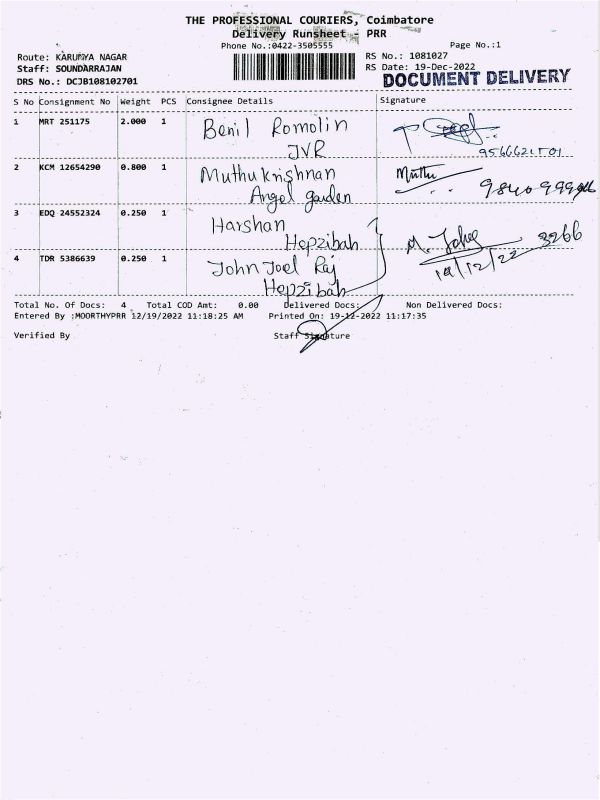 THE PROFESSIONAL COURIERS, Coimbatore
Delivery Runsheet - PRR
Phone No.:0422-3505555
Page No.:1
Route: KARUNYA NAGAR
RS No.: 1081027
Staff: SOUNDARRAJAN
RS Date: 19-Dec-2022
DRS No.: DCJB108102701
DOCUMENT DELIVERY
S No Consignment No Weight PCS Consignee Details Signature
1 MRT 251175 2.000 1 Benil Romolin
JVR
2 KCM 12654290 0.800 1 Muthukrishnan Muthu
Angel garden
3 EDQ 24552324 0.250 1 Harshan
Hepzibah 3266
4 TDR 5386639 0.250 1 John Joel Raj 19/12/22
Hepzibah
Total No. Of Docs: 4 Total COD Amt: 0.00 Delivered Docs: Non Delivered Docs:
Entered By :MOORTHYPRR 12/19/2022 11:18:25 AM Printed On: 19-12-2022 11:17:35
Verified By Staff Signature